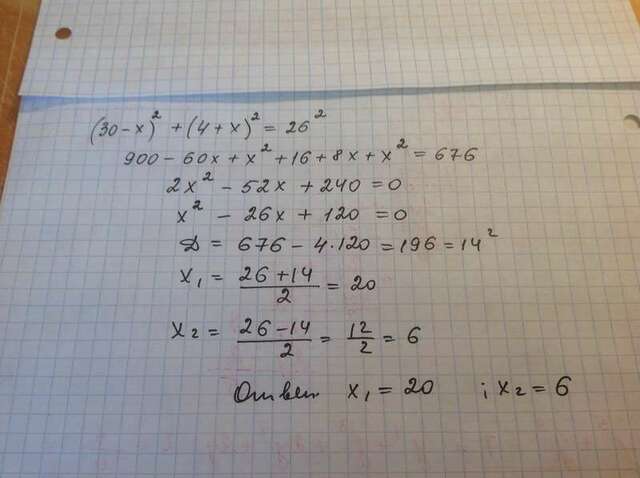 (30-x)² + (4+x)² = 26²
900 - 60x + x² + 16 + 8x + x² = 676
2x² - 52x + 240 = 0
x² - 26x + 120 = 0
D = 676 - 4·120 = 196 = 14²
x₁ = (26+14)/2 = 20
x₂ = (26-14)/2 = 12/2 = 6
Ответ x₁ = 20 ; x₂ = 6